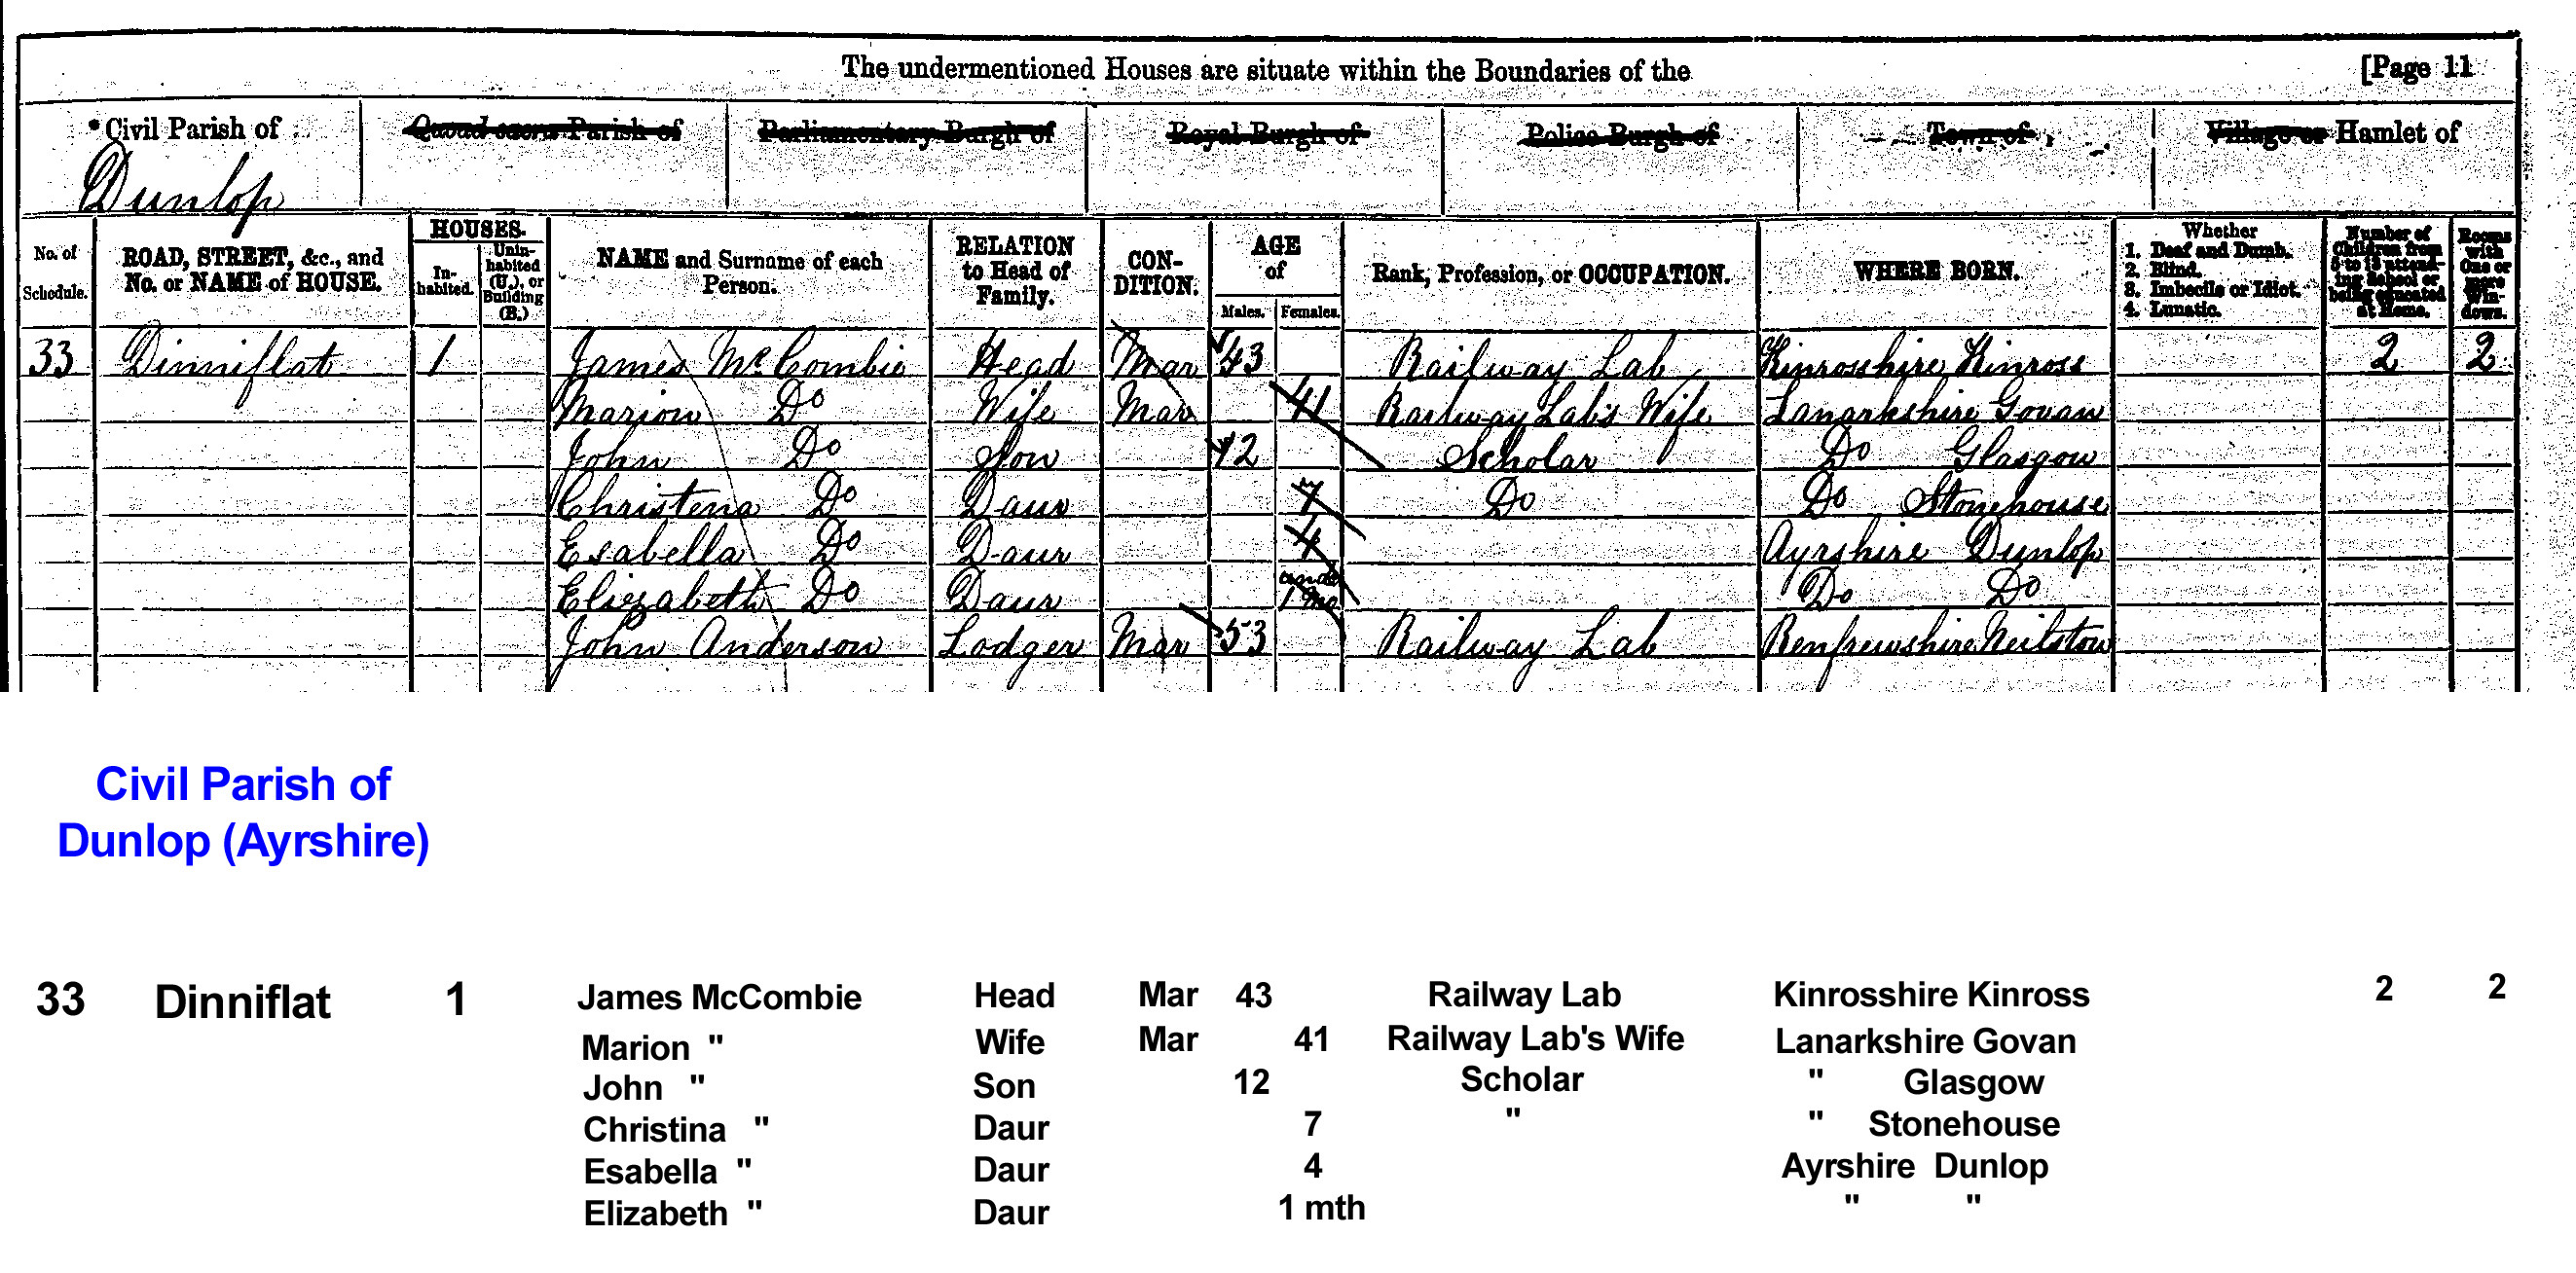 The undermentioned Houses are situate within the Boundaries of the [Page 11
Civil Parish of Quoad sacra Parish of Parliamentary Burgh of Royal Burgh of Police Burgh of Town of Village or Hamlet of
Dunlop
No. of Schedule. ROAD, STREET, &c., and No. or NAME of HOUSE. HOUSES. Inhabited. Uninhabited (U.), or Building (B.) NAME and Surname of each Person. RELATION to Head of Family. CONDITION. AGE of Males. Females. Rank, Profession, or OCCUPATION. WHERE BORN. Whether 1. Deaf and Dumb. 2. Blind. 3. Imbecile or Idiot. 4. Lunatic. Number of Children from 5 to 13 attending School or being educated at Home. Rooms with One or more Windows.
33 Dinniflat 1 James McCombie Head Mar 43 Railway Lab Kinrosshire Kinross 2 2
Marion Do Wife Mar 41 Railway Lab's Wife Lanarkshire Govan
John Do Son 12 Scholar Do Glasgow
Christena Do Daur 7 Do Do Stonehouse
Esabella Do Daur 4 Ayrshire Dunlop
Elizabeth Do Daur under 1 mo Do Do
John Anderson Lodger Mar 53 Railway Lab Renfrewshire Neilston
Civil Parish of
Dunlop (Ayrshire)
33 Dinniflat 1 James McCombie Head Mar 43 Railway Lab Kinrosshire Kinross 2 2
Marion " Wife Mar 41 Railway Lab's Wife Lanarkshire Govan
John " Son 12 Scholar " Glasgow
Christina " Daur 7 " " Stonehouse
Esabella " Daur 4 Ayrshire Dunlop
Elizabeth " Daur 1 mth " "